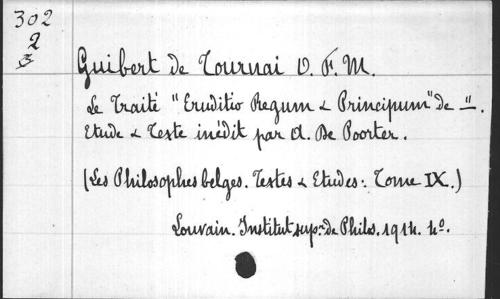 302
2
3
Guibert de Tournai O. F. M.
Le Traité "Eruditio Regum & Principum" de ".
Etude & Texte inédit par A. De Poorter.
(Les Philosophes belges. Textes & Etudes: Tome IX.)
Louvain. Institut sup. de Philos. 1914. 4°.